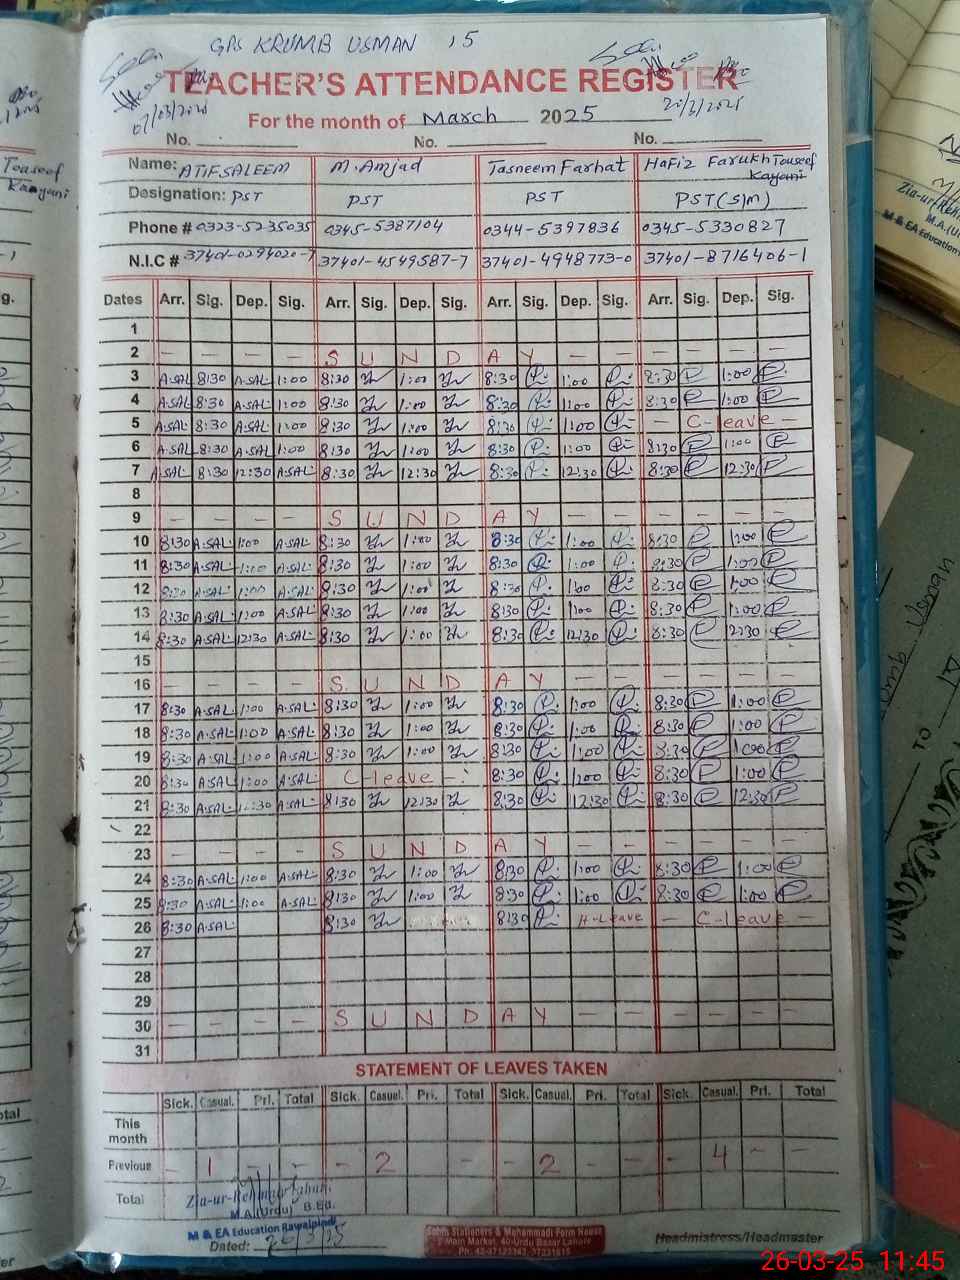 GPS KRUMB USMAN 15
TEACHER'S ATTENDANCE REGISTER
07/03/2025
20/3/2025
For the month of March 2025
No. No. No.
Name: ATIF SALEEM M. Amjad Tasneem Farhat Hafiz Farukh Touseef Kayani
Designation: PST PST PST PST(S/M)
Phone # 0323-5235035 0345-5387104 0344-5397836 0345-5330827
N.I.C # 37401-0294020-7 37401-4549587-7 37401-4948773-0 37401-8716406-1
Dates Arr. Sig. Dep. Sig. Arr. Sig. Dep. Sig. Arr. Sig. Dep. Sig. Arr. Sig. Dep. Sig.
1
2 – – – – S U N D A Y – – – – – –
3 A.SAL 8:30 A.SAL 1:00 8:30 1:00 8:30 1:00 8:30 1:00
4 A.SAL 8:30 A.SAL 1:00 8:30 1:00 8:30 1:00 8:30 1:00
5 A.SAL 8:30 A.SAL 1:00 8:30 1:00 8:30 1:00 – C-leave –
6 A.SAL 8:30 A.SAL 1:00 8:30 1:00 8:30 1:00 8:30 1:00
7 A.SAL 8:30 12:30 A.SAL 8:30 12:30 8:30 12:30 8:30 12:30
8
9 – – – – S U N D A Y – – – – – –
10 8:30 A.SAL 1:00 A.SAL 8:30 1:00 8:30 1:00 8:30 1:00
11 8:30 A.SAL 1:00 A.SAL 8:30 1:00 8:30 1:00 8:30 1:00
12 8:30 A.SAL 1:00 A.SAL 8:30 1:00 8:30 1:00 8:30 1:00
13 8:30 A.SAL 1:00 A.SAL 8:30 1:00 8:30 1:00 8:30 1:00
14 8:30 A.SAL 12:30 A.SAL 8:30 1:00 8:30 12:30 8:30 12:30
15
16 – – – – S U N D A Y – – – – – –
17 8:30 A.SAL 1:00 A.SAL 8:30 1:00 8:30 1:00 8:30 1:00
18 8:30 A.SAL 1:00 A.SAL 8:30 1:00 8:30 1:00 8:30 1:00
19 8:30 A.SAL 1:00 A.SAL 8:30 1:00 8:30 1:00 8:30 1:00
20 8:30 A.SAL 1:00 A.SAL C-leave – 8:30 1:00 8:30 1:00
21 8:30 A.SAL 12:30 A.SAL 8:30 12:30 8:30 12:30 8:30 12:30
22
23 – – – – S U N D A Y – – – – – –
24 8:30 A.SAL 1:00 A.SAL 8:30 1:00 8:30 1:00 8:30 1:00
25 8:30 A.SAL 1:00 A.SAL 8:30 1:00 8:30 1:00 8:30 1:00
26 8:30 A.SAL 8:30 8:30 H-Leave – C-leave –
27
28
29
30 – – – – S U N D A Y – – – – – –
31
STATEMENT OF LEAVES TAKEN
Sick. Casual. Pri. Total Sick. Casual. Pri. Total Sick. Casual. Pri. Total Sick. Casual. Pri. Total
This month
Previous – 1 – – – 2 – – – 2 – – – 4 – –
Total
Zia-ur-Rehman
M.A (Urdu) B.Ed.
M & EA Education Rawalpindi
Dated: 26/3/25
Sohni Stationers & Mohammadi Form House
Main Market, 40-Urdu Bazar Lahore
Headmistress/Headmaster
26-03-25 11:45